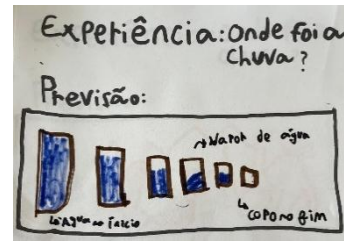 Experiência: Onde foi a
chuva?
Previsão:
Vapor de água
Água no início
Copo no fim